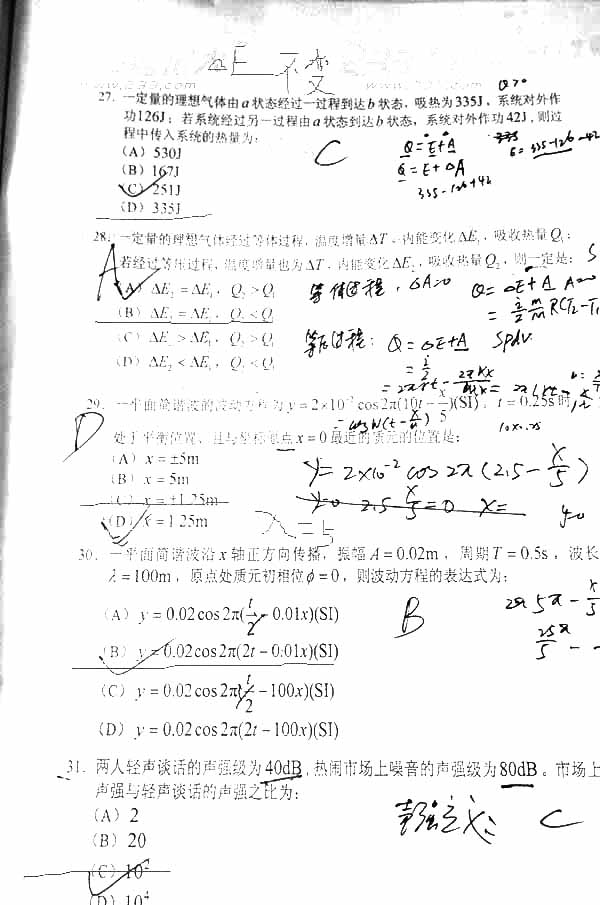 ΔE 不变
27. 一定量的理想气体由a状态经过一过程到达b状态，吸热为335J，系统对外作
功126J；若系统经过另一过程由a状态到达b状态，系统对外作功42J，则过
程中传入系统的热量为：
(A) 530J
(B) 167J
(C) 251J
(D) 335J
C
Q=E+A
Q=E+ΔA
335-126+42
28. 一定量的理想气体经过等体过程，温度增量ΔT，内能变化ΔE₁，吸收热量Q₁；
若经过等压过程，温度增量也为ΔT，内能变化ΔE₂，吸收热量Q₂，则一定是：
(A) ΔE₂=ΔE₁，Q₂>Q₁
(B) ΔE₂=ΔE₁，Q₂<Q₁
(C) ΔE₂>ΔE₁，Q₂>Q₁
(D) ΔE₂<ΔE₁，Q₂<Q₁
A
等体过程，ΔA=0
等压过程：Q=ΔE+A
29. 一平面简谐波的波动方程为y=2×10⁻²cos2π(10t-x/5)(SI)。t=0.25s时，
处于平衡位置、且与坐标原点x=0最近的质元的位置是：
(A) x=±5m
(B) x=5m
(C) x=±1.25m
(D) x=1.25m
D
y=2×10⁻²cos2π(2.5-x/5)
y=0 2.5-x/5=0 x=
30. 一平面简谐波沿x轴正方向传播，振幅A=0.02m，周期T=0.5s，波长
λ=100m，原点处质元初相位ϕ=0，则波动方程的表达式为：
(A) y=0.02cos2π(t/2-0.01x)(SI)
(B) y=0.02cos2π(2t-0.01x)(SI)
(C) y=0.02cos2π(t/2-100x)(SI)
(D) y=0.02cos2π(2t-100x)(SI)
B
31. 两人轻声谈话的声强级为40dB，热闹市场上噪音的声强级为80dB。市场上
声强与轻声谈话的声强之比为：
(A) 2
(B) 20
(C) 10²
(D) 10⁴
C